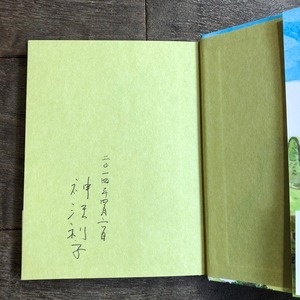 二〇一四年四月 日
神沢利子